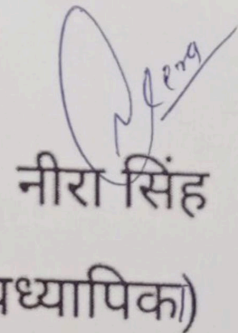 नीरा सिंह
ध्यापिका)